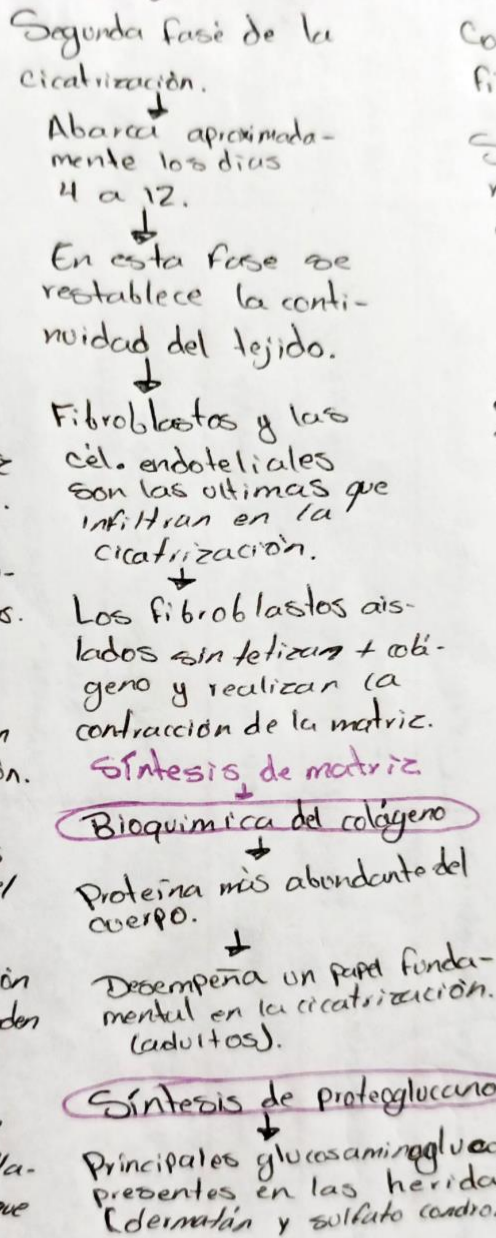 Segunda fase de la
cicatrización.
Abarca aproximada-
mente los dias
4 a 12.
En esta fase se
restablece la conti-
nuidad del tejido.
Fibroblastos y las
cél. endoteliales
son las ultimas que
infiltran en la
cicatrización.
Los fibroblastos ais-
lados sintetizan + colá-
geno y realizan la
contracción de la matriz.
Síntesis de matriz
Bioquimica del colágeno
Proteína más abundante del
cuerpo.
Desempeña un papel funda-
mental en la cicatrización.
(adultos).
Síntesis de proteoglucano
Principales glucosaminogluc
presentes en las herida
(dermatán y sulfato condro.